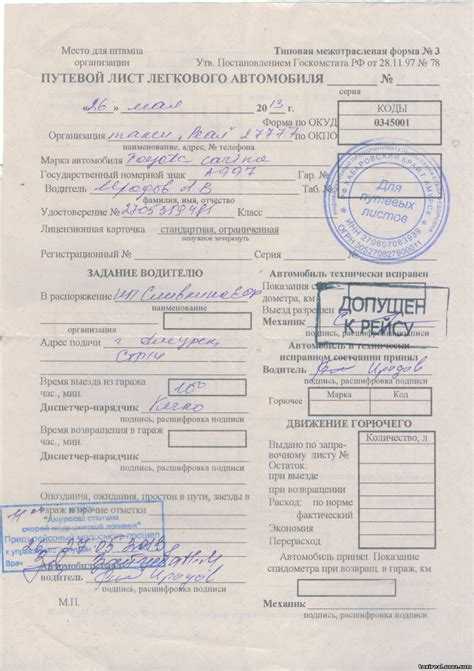 Место для штампа
организации
Типовая межотраслевая форма № 3
Утв. Постановлением Госкомстата РФ от 28.11.97 № 78
ПУТЕВОЙ ЛИСТ ЛЕГКОВОГО АВТОМОБИЛЯ ______ № ______
серия
« 26 » мая 2013 г.
КОДЫ
Форма по ОКУД 0345001
Организация такси "Реал" 27777 по ОКПО
наименование, адрес, № телефона
Марка автомобиля Toyota carina
Государственный номерной знак А 997 Гар. №
Водитель Иродов А.В Таб. №
фамилия, имя, отчество
Удостоверение № Класс
Лицензионная карточка стандартная, ограниченная
ненужное зачеркнуть
Регистрационный № Серия №
Для путевых листов
ХАБАРОВСКИЙ КРАЙ
ЗАДАНИЕ ВОДИТЕЛЮ
В распоряжение ИП
наименование
организация
Адрес подачи г. Амурск
Время выезда из гаража
час., мин.
Диспетчер-нарядчик
подпись, расшифровка подписи
Время возвращения в гараж
час., мин.
Диспетчер-нарядчик
подпись, расшифровка подписи
Опоздания, ожидания, простои в пути, заезды в
гараж и прочие отметки
"Амурская станция
скорой медицинской помощи"
Врач
Автомобиль сдал
водитель Иродов
подпись, расшифровка подписи
М.П.
Автомобиль технически исправен
Показания
дометра, км
Выезд разрешен
Механик
подпись, расшифровка подписи
ДОПУЩЕН
К РЕЙСУ
Автомобиль в технически
исправном состоянии принял
Водитель Иродов
подпись, расшифровка подписи
Горючее
Марка Код
ДВИЖЕНИЕ ГОРЮЧЕГО
Количество, л
Выдано по запра-
вочному листу №
Остаток:
при выезде
при возвращении
Расход: по норме
фактический
Экономия
Перерасход
Автомобиль принял. Показание
спидометра при возвращ. в гараж, км
Механик
подпись, расшифровка подписи